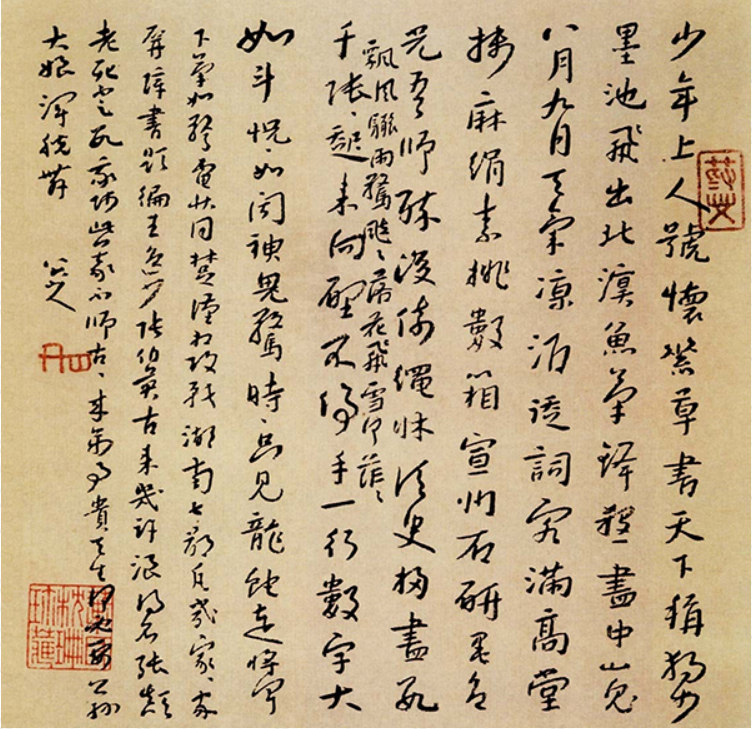 少年上人號懷素草書天下稱獨步
墨池飛出北溟魚筆鋒殺盡中山兔
八月九月天氣凉酒徒詞客滿高堂
麻絹素排數箱宣州石硏墨色
光吾師醉後倚繩牀須臾掃盡數
飄風驟雨驚颯〻落花飛雪何茫〻
千張起來向壁不停手一行數字大
如斗怳〻如聞神鬼驚時〻只見龍蛇走
下筆如驚電狀同楚漢相攻戰湖南七郡凡幾家〻
屏障書題徧王逸少張伯英古來幾許浪得名張顛
老死不足數我師此義不師古〻來萬事貴天生何必要公孫
大娘渾脫舞 八大山人